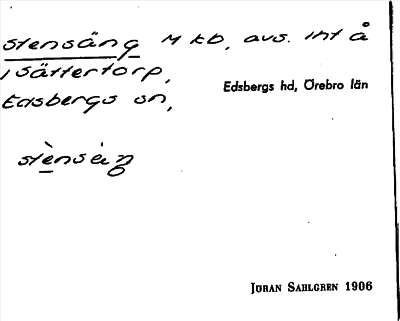 stensäng M kb, avs. int å
i sättertorp,
Edsbergs sn,
Edsbergs hd, Örebro län
JÖRAN SAHLGREN 1906